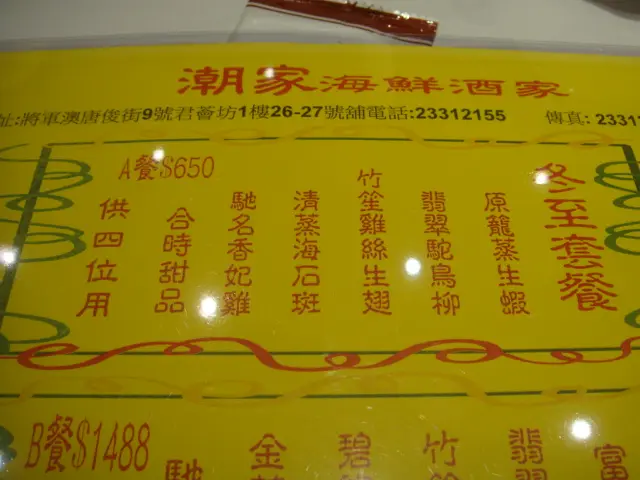 潮家海鮮酒家
址:將軍澳唐俊街9號君薈坊1樓26-27號舖電話:23312155 傳真: 2331
冬至套餐
A餐$650
原籠蒸生蝦
翡翠駝鳥柳
竹笙雞絲生翅
清蒸海石斑
馳名香妃雞
合時甜品
供四位用
B餐$1488
富
翡翠
竹
碧
金
馳